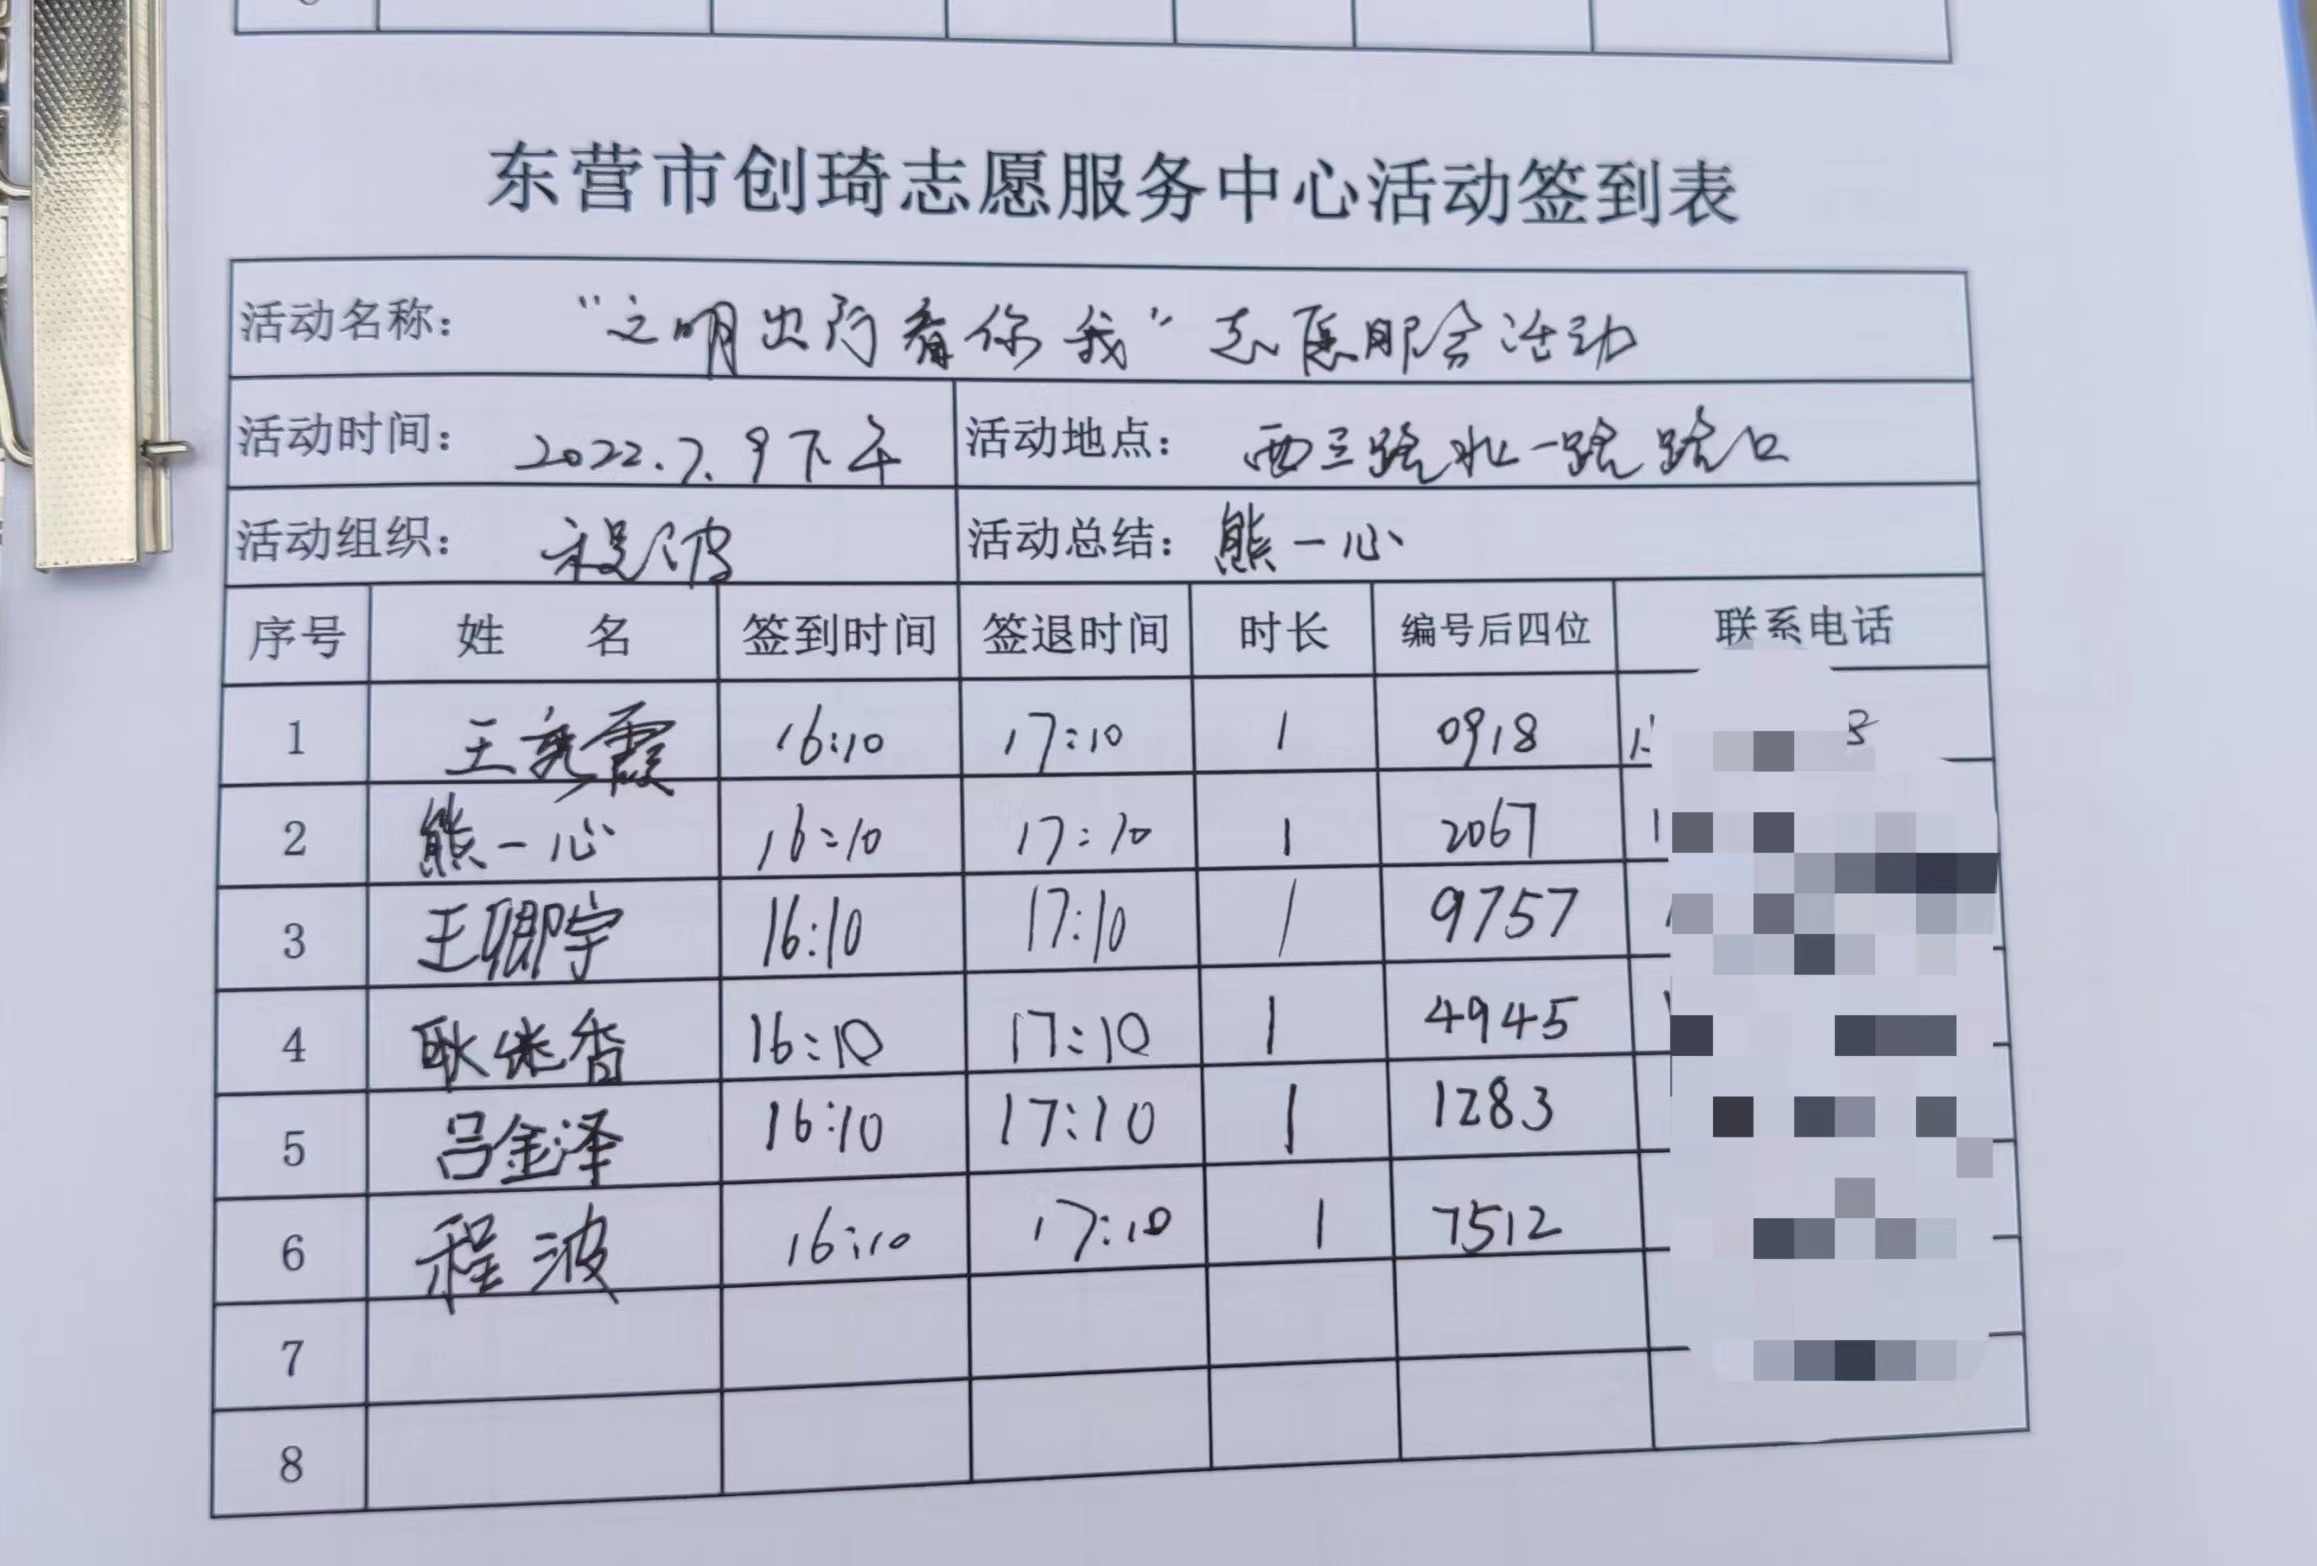 东营市创琦志愿服务中心活动签到表
活动名称： “文明出行有你我”志愿服务活动
活动时间： 2022.7.9下午 活动地点： 西三路北一路路口
活动组织： 程波 活动总结： 熊一心
序号 姓 名 签到时间 签退时间 时长 编号后四位 联系电话
1 王秀霞 16:10 17:10 1 0918
2 熊一心 16:10 17:10 1 2067
3 王卿宇 16:10 17:10 1 9757
4 耿继香 16:10 17:10 1 4945
5 吕金泽 16:10 17:10 1 1283
6 程波 16:10 17:10 1 7512
7
8